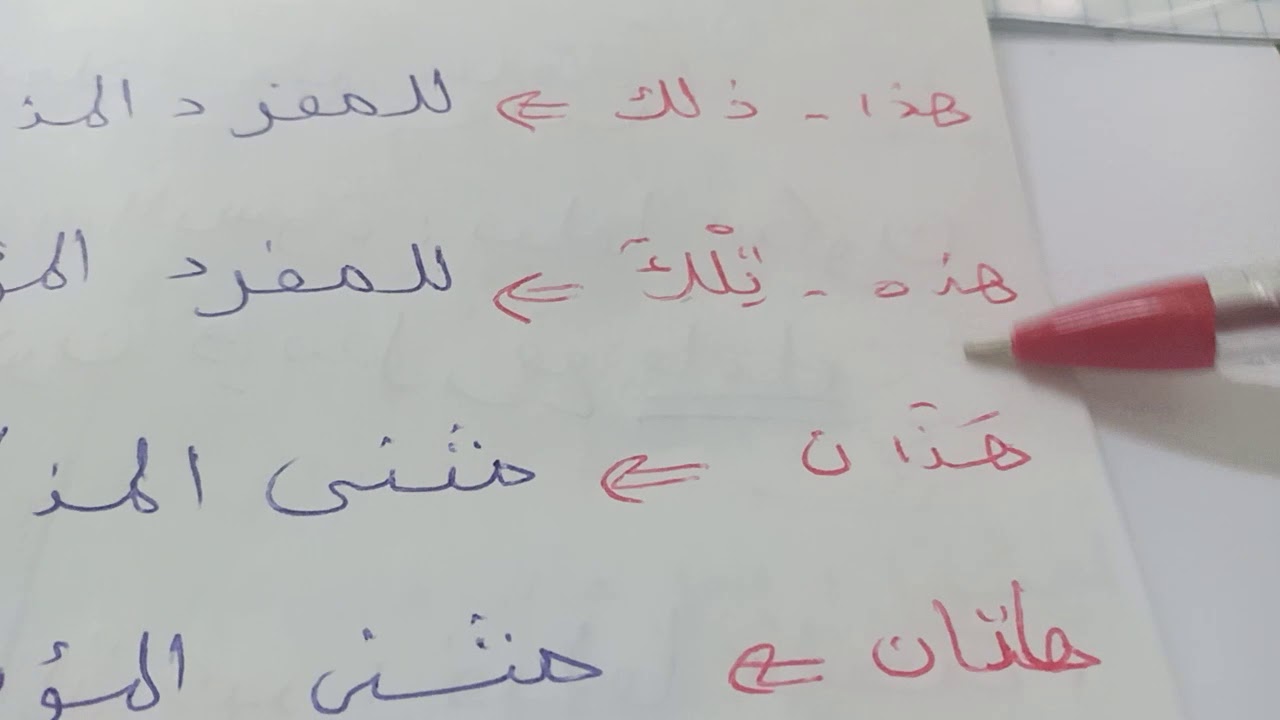 هذا - ذلك ⇐ للمفرد المذ
هذه - تِلْكَ ⇐ للمفرد المؤ
هَذَان ⇐ مثنى المذ
هاتان ⇐ مثنى المؤ